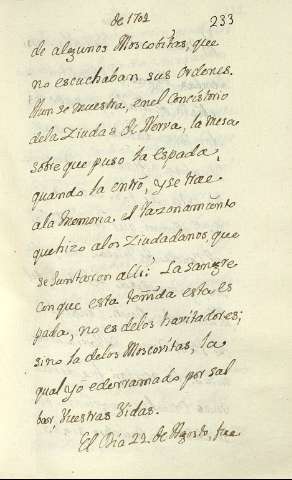 de 1702
233
de algunos Moscobitas, que
no escuchaban sus Ordenes.
Aun se muestra, en el Concistorio
de la Ziudad de Nerva, la mesa
sobre que puso la Espada,
quando la entrò, y se trae
a la Memoria. el Razonamiento
que hizo a los Ziudadanos, que
se Juntaron alli: La sangre
con que esta teñida esta es
pada, no es de los havitadores;
sino la de los Moscovitas, la
qual yo e derramado por sal
bar, Vuestras Vidas.
El Dia 22 de Agosto, fue